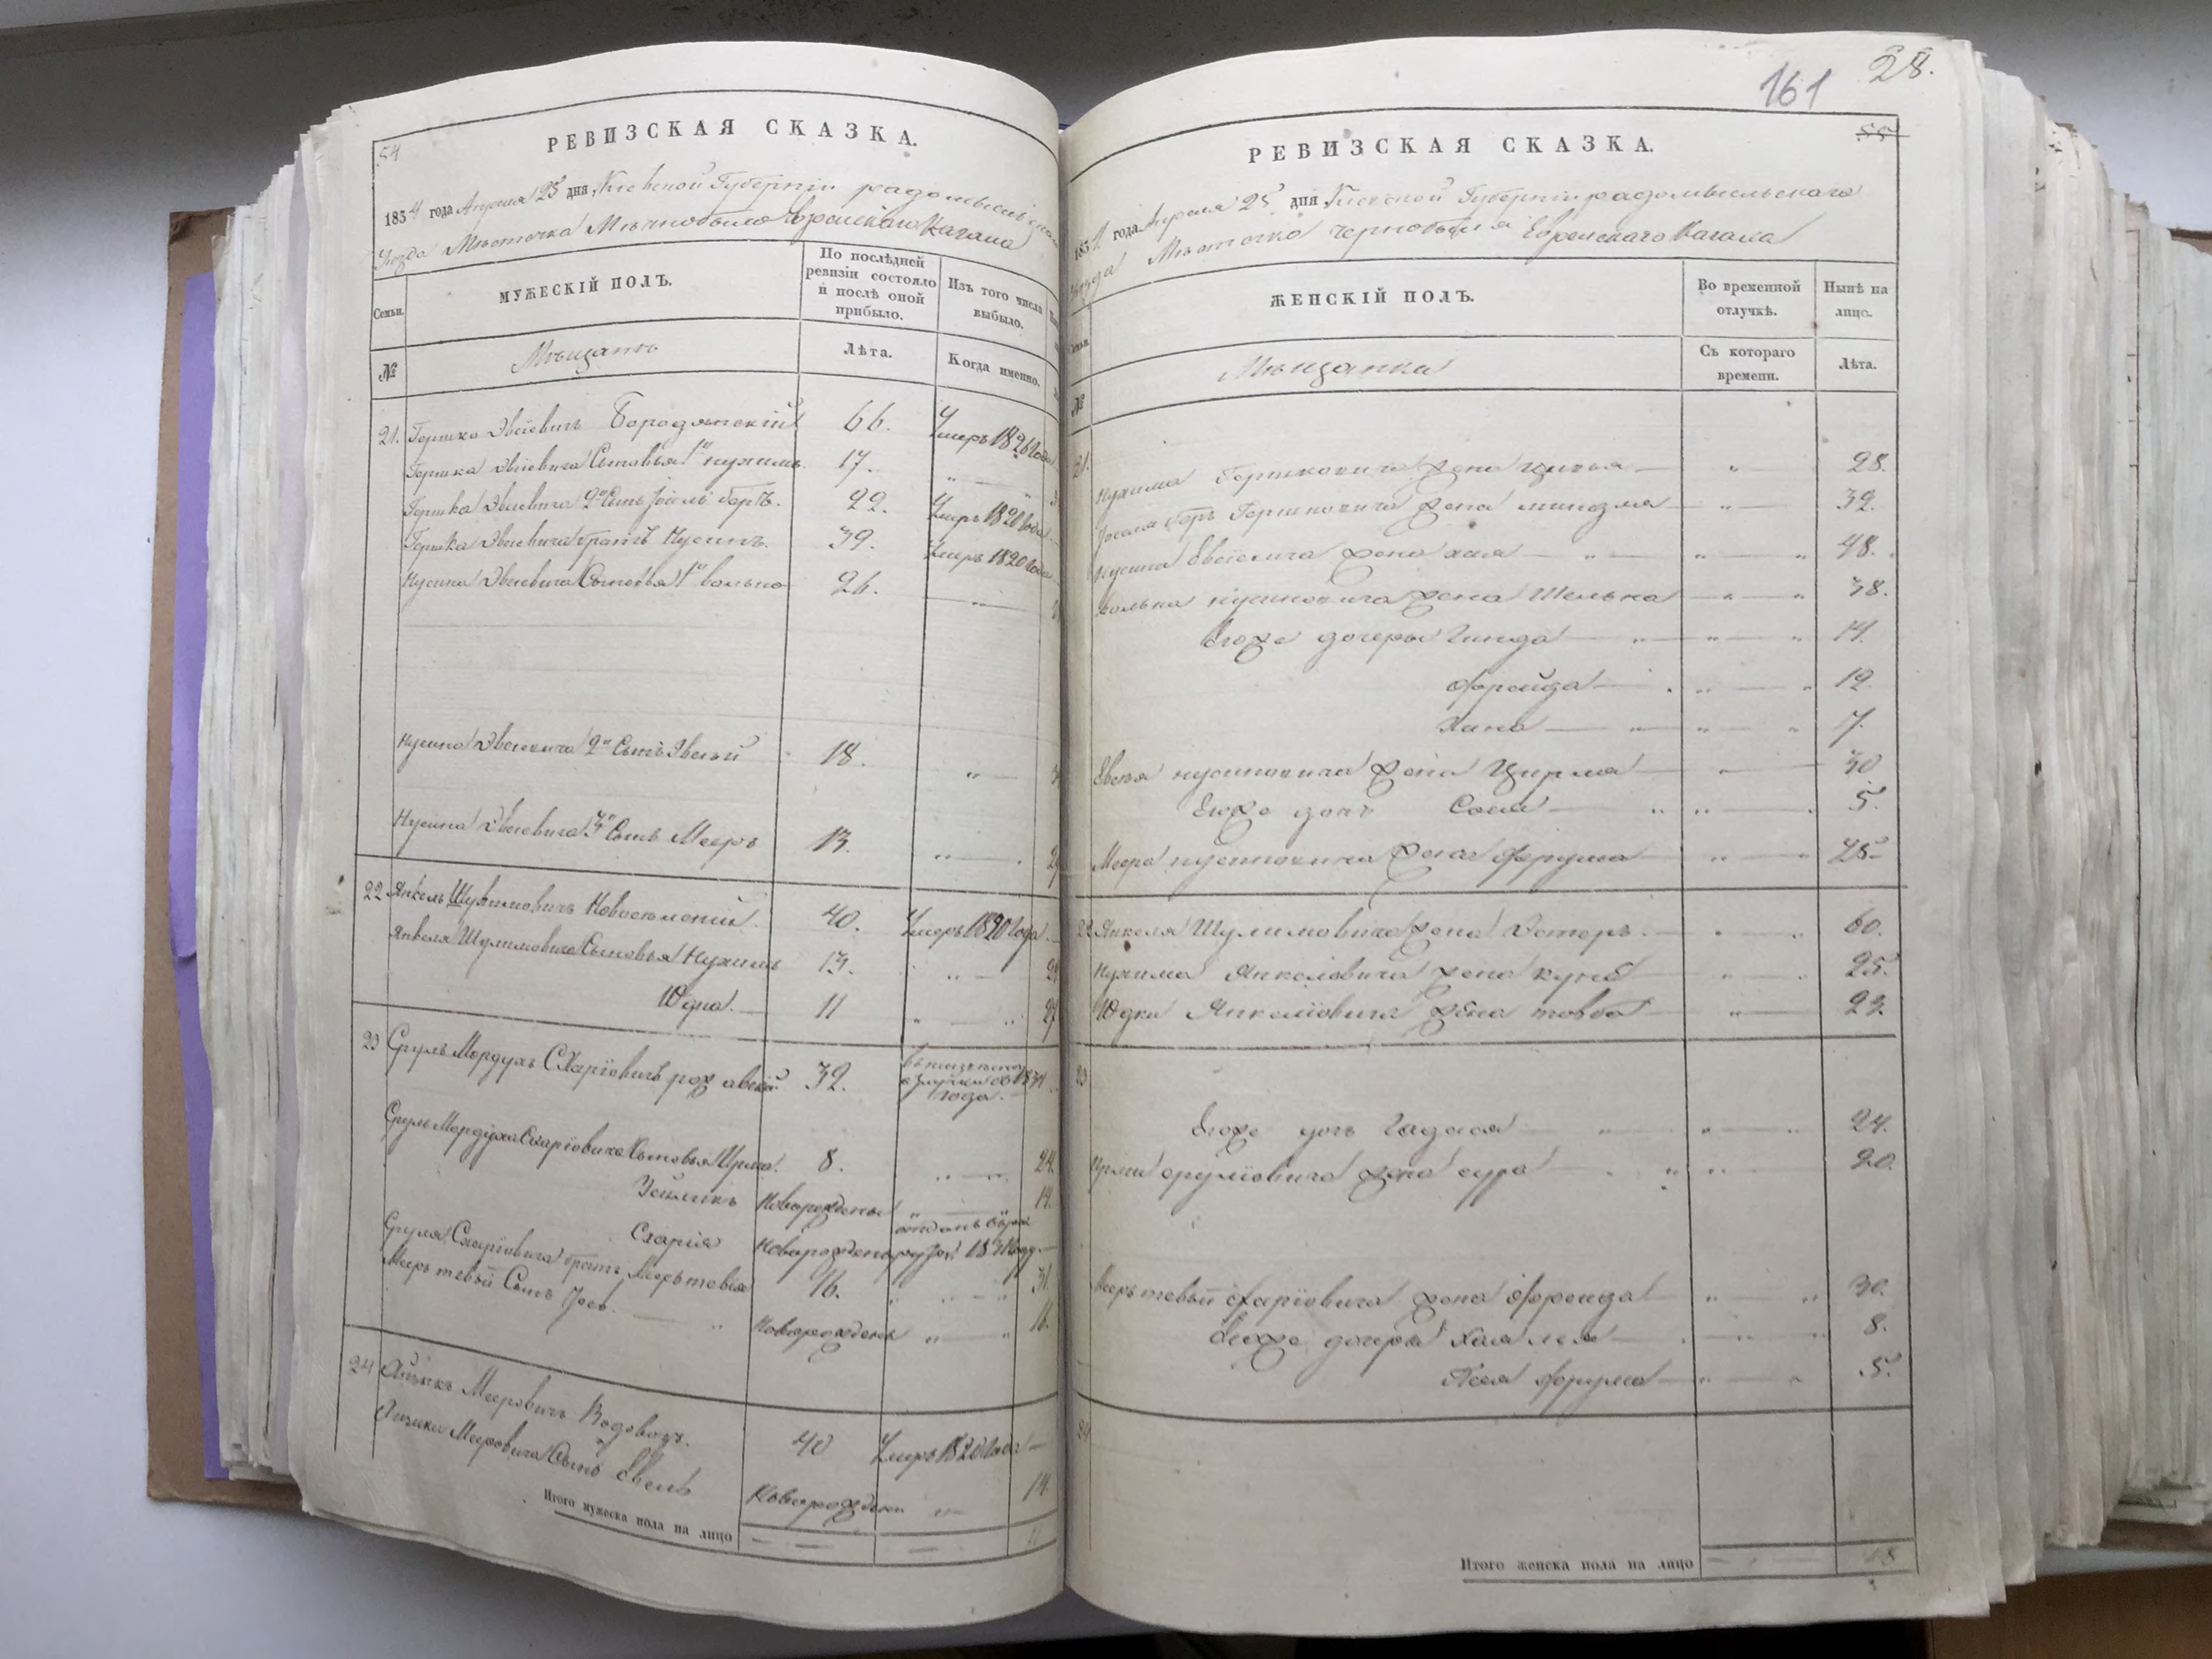 54
РЕВИЗСКАЯ СКАЗКА.
1834 года Апреля 25 дня, Киевской Губерніи радомысльскаго
Уезда Местечка Еврейскаго Кагала
Семьи.
МУЖЕСКІЙ ПОЛЪ.
По послѣдней ревизіи состояло и послѣ оной прибыло.
Изъ того числа выбыло.
№
Мѣщанъ
Лѣта.
Когда именно.
21. Гершко Эвсіевичъ Бородянскій 66. Умеръ 1826 года
Гершка Эвсіевича Сыновья 1й нухимъ 17. „
Гершка Эвсіевича 2й Сынъ Іосель беръ. 22. Умеръ 1820 года
Гершка Эвсіевича братъ Нусинъ. 39. Умеръ 1820 года
Нусина Эвсіевича Сыновья 1й волько 26. „
Нусина Эвсіевича 2й Сынъ Эвсей 18. „
Нусина Эвсіевича 3й Сынъ Мееръ 13. „
22 Янкель Шулимовичъ 40. Умеръ 1820 года
Янкеля Шулимовича Сыновья Нухимъ 13. „
Юдка. 11 „ 27
23 Сруль Мордухъ Схаріовичъ 32. 1831 года.
Сруль Мордуха Схаріовича Сыновья 8. „ 24.
Новорожденъ „ 14.
Схарія Новорожденъ 1831 году
Сруля Схаріовича братъ Мееръ тевія 16. „ 31
Мееръ тевій Сынъ Іось. Новорожденъ „ 16.
24 Айзикъ Мееровичъ Водовозъ. 40 Умеръ 1820 года
Айзика Мееровича Сынъ Новорожденъ „ 14.
Итого мужеска пола на лицо
161
28.
55
РЕВИЗСКАЯ СКАЗКА.
1834 года Апреля 25 дня Киевской Губерніи радомысльскаго
Уезда Местечка Чернобыля Еврейскаго Кагала
ЖЕНСКІЙ ПОЛЪ.
Во временной отлучкѣ.
Нынѣ на лицо.
№
Мѣщанки
Съ котораго времени.
Лѣта.
21. Нухима Гершковича жена „ 28.
Іоселя беръ Гершковича жена „ 32.
Нусина Евсіевича жена хая „ „ 48.
Волька нусиновича жена „ „ 38.
Егоже дочеры Гинда „ „ 14.
фрейда „ „ 12.
Хана „ „ 7.
Евсея нусиновича жена Цирля „ 30
Егоже дочь Сося „ 5.
Меера нусиновича жена фрума „ „ 25
22 Янкеля Шулимовича жена Эстеръ. „ 60.
Нухима Янкеліовича жена „ 25.
Юдки Янкеліовича жена товба „ 23.
23
Егоже дочь Гадася „ „ 24.
срулiовича жена сура „ „ 20.
Мееръ тевій Схаріовича жена Фрейда „ „ 30.
Егоже дочеры „ „ 8.
фрума „ „ 5.
24
Итого женска пола на лицо